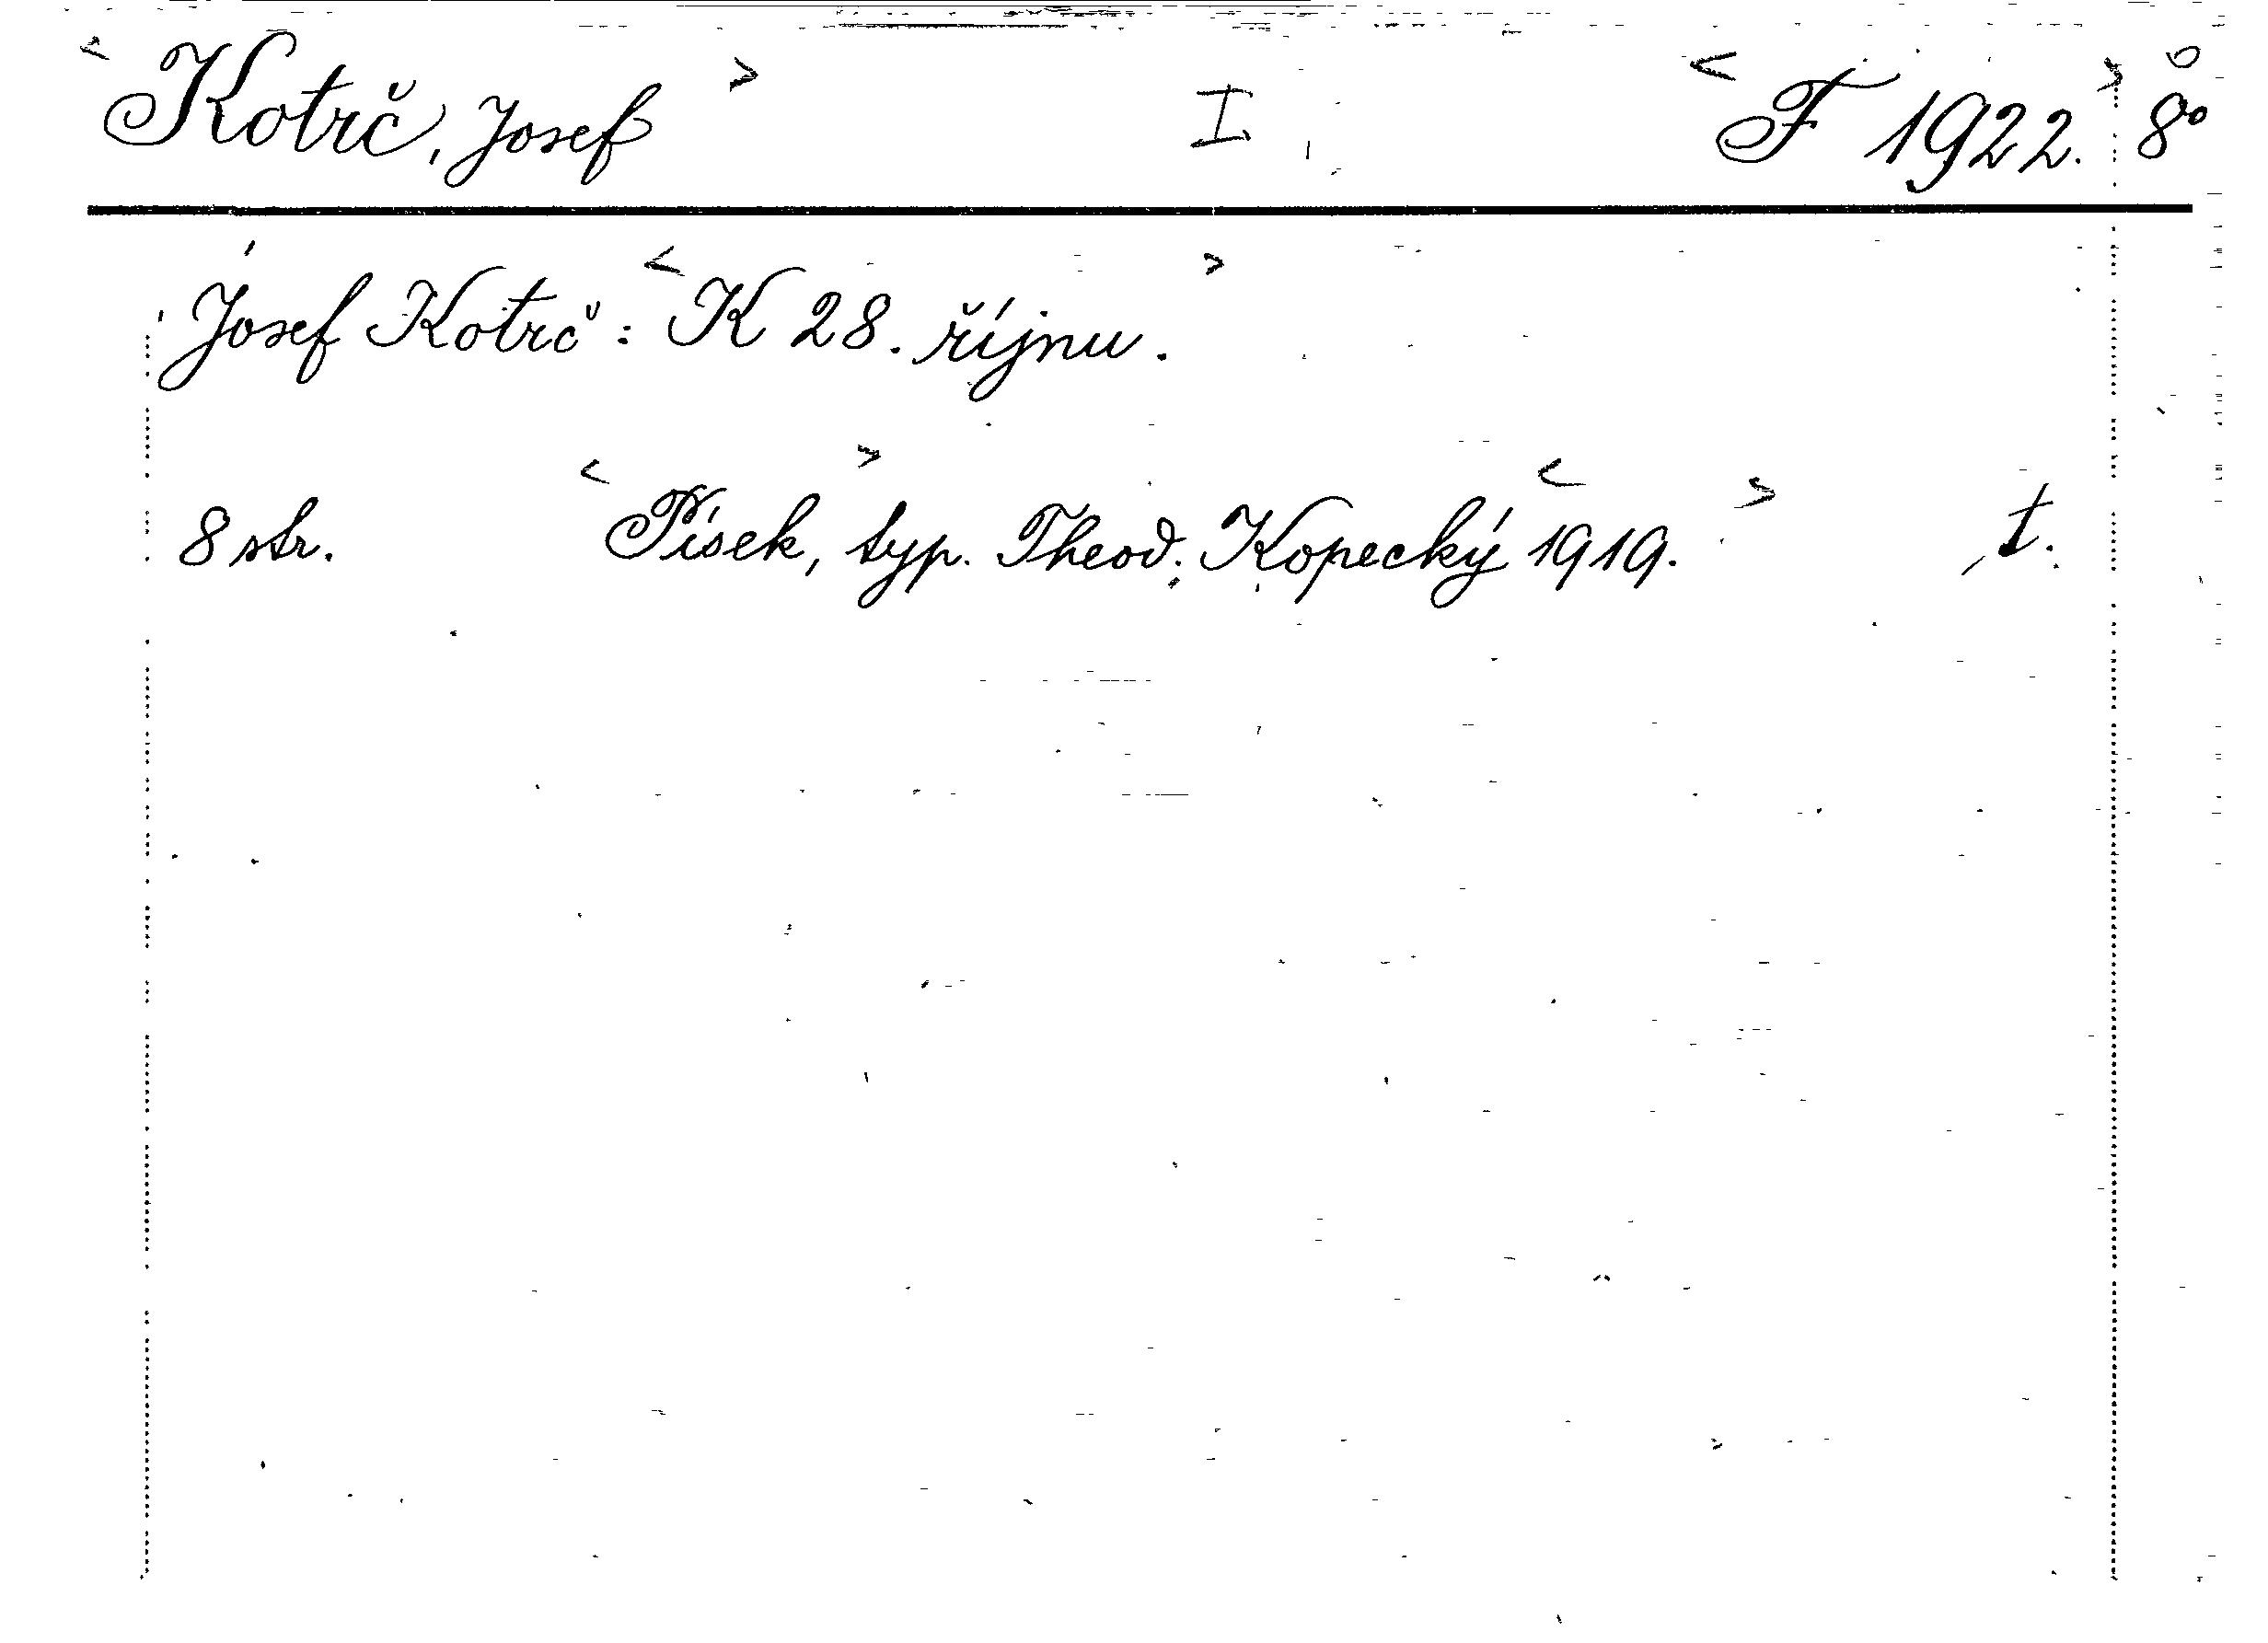 <Kotrč, Josef> I <F 1922.> 8°
Josef Kotrč: <K 28. říjnu.>
8 str. <Písek>, typ. Theod. Kopecký <1919.> t.